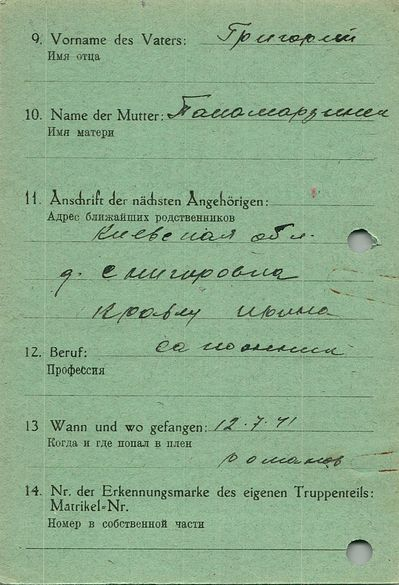 9. Vorname des Vaters: Григорий
Имя отца
10. Name der Mutter:
Имя матери
11. Anschrift der nächsten Angehörigen:
Адрес ближайших родственников
Киевская обл.
д. Снигировка
ирина
12. Beruf: сапожник
Профессия
13 Wann und wo gefangen: 12.7.41
Когда и где попал в плен
романов
14. Nr. der Erkennungsmarke des eigenen Truppenteils:
Matrikel=Nr.
Номер в собственной части